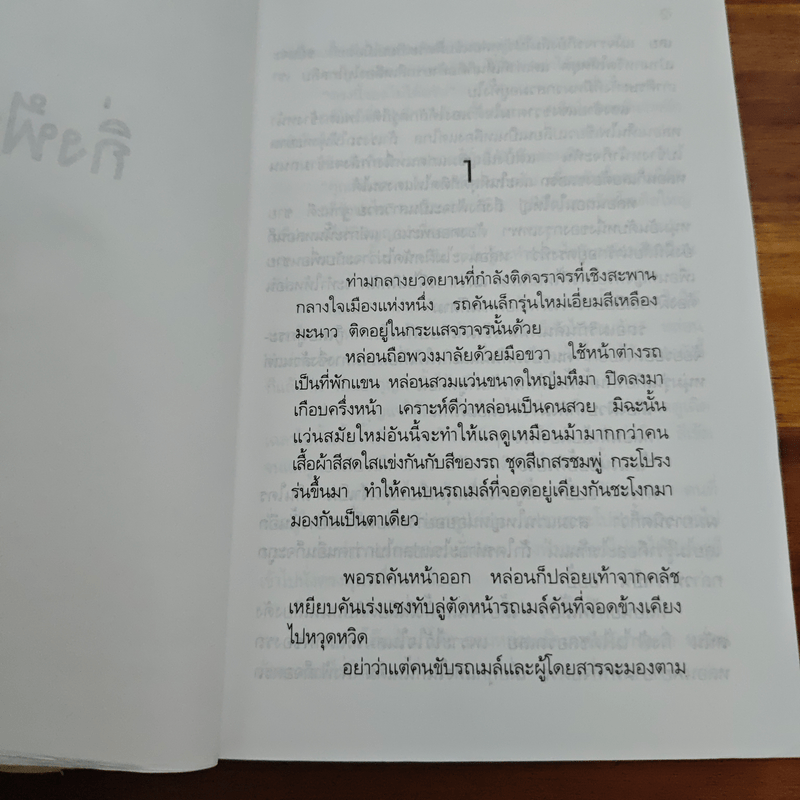 1
ท่ามกลางยวดยานที่กำลังติดจราจรที่เชิงสะพาน
กลางใจเมืองแห่งหนึ่ง รถคันเล็กรุ่นใหม่เอี่ยมสีเหลือง
มะนาว ติดอยู่ในกระแสจราจรนั้นด้วย
หล่อนถือพวงมาลัยด้วยมือขวา ใช้หน้าต่างรถ
เป็นที่พักแขน หล่อนสวมแว่นขนาดใหญ่มหึมา ปิดลงมา
เกือบครึ่งหน้า เคราะห์ดีว่าหล่อนเป็นคนสวย มิฉะนั้น
แว่นสมัยใหม่อันนี้จะทำให้แลดูเหมือนม้ามากกว่าคน
เสื้อผ้าสีสดใสแข่งกันกับสีของรถ ชุดสีเกสรชมพู่ กระโปรง
ร่นขึ้นมา ทำให้คนบนรถเมล์ที่จอดอยู่เคียงกันชะโงกมา
มองกันเป็นตาเดียว
พอรถคันหน้าออก หล่อนก็ปล่อยเท้าจากคลัช
เหยียบคันเร่งแซงทับลู่ตัดหน้ารถเมล์คันที่จอดข้างเคียง
ไปหวุดหวิด
อย่าว่าแต่คนขับรถเมล์และผู้โดยสารจะมองตาม